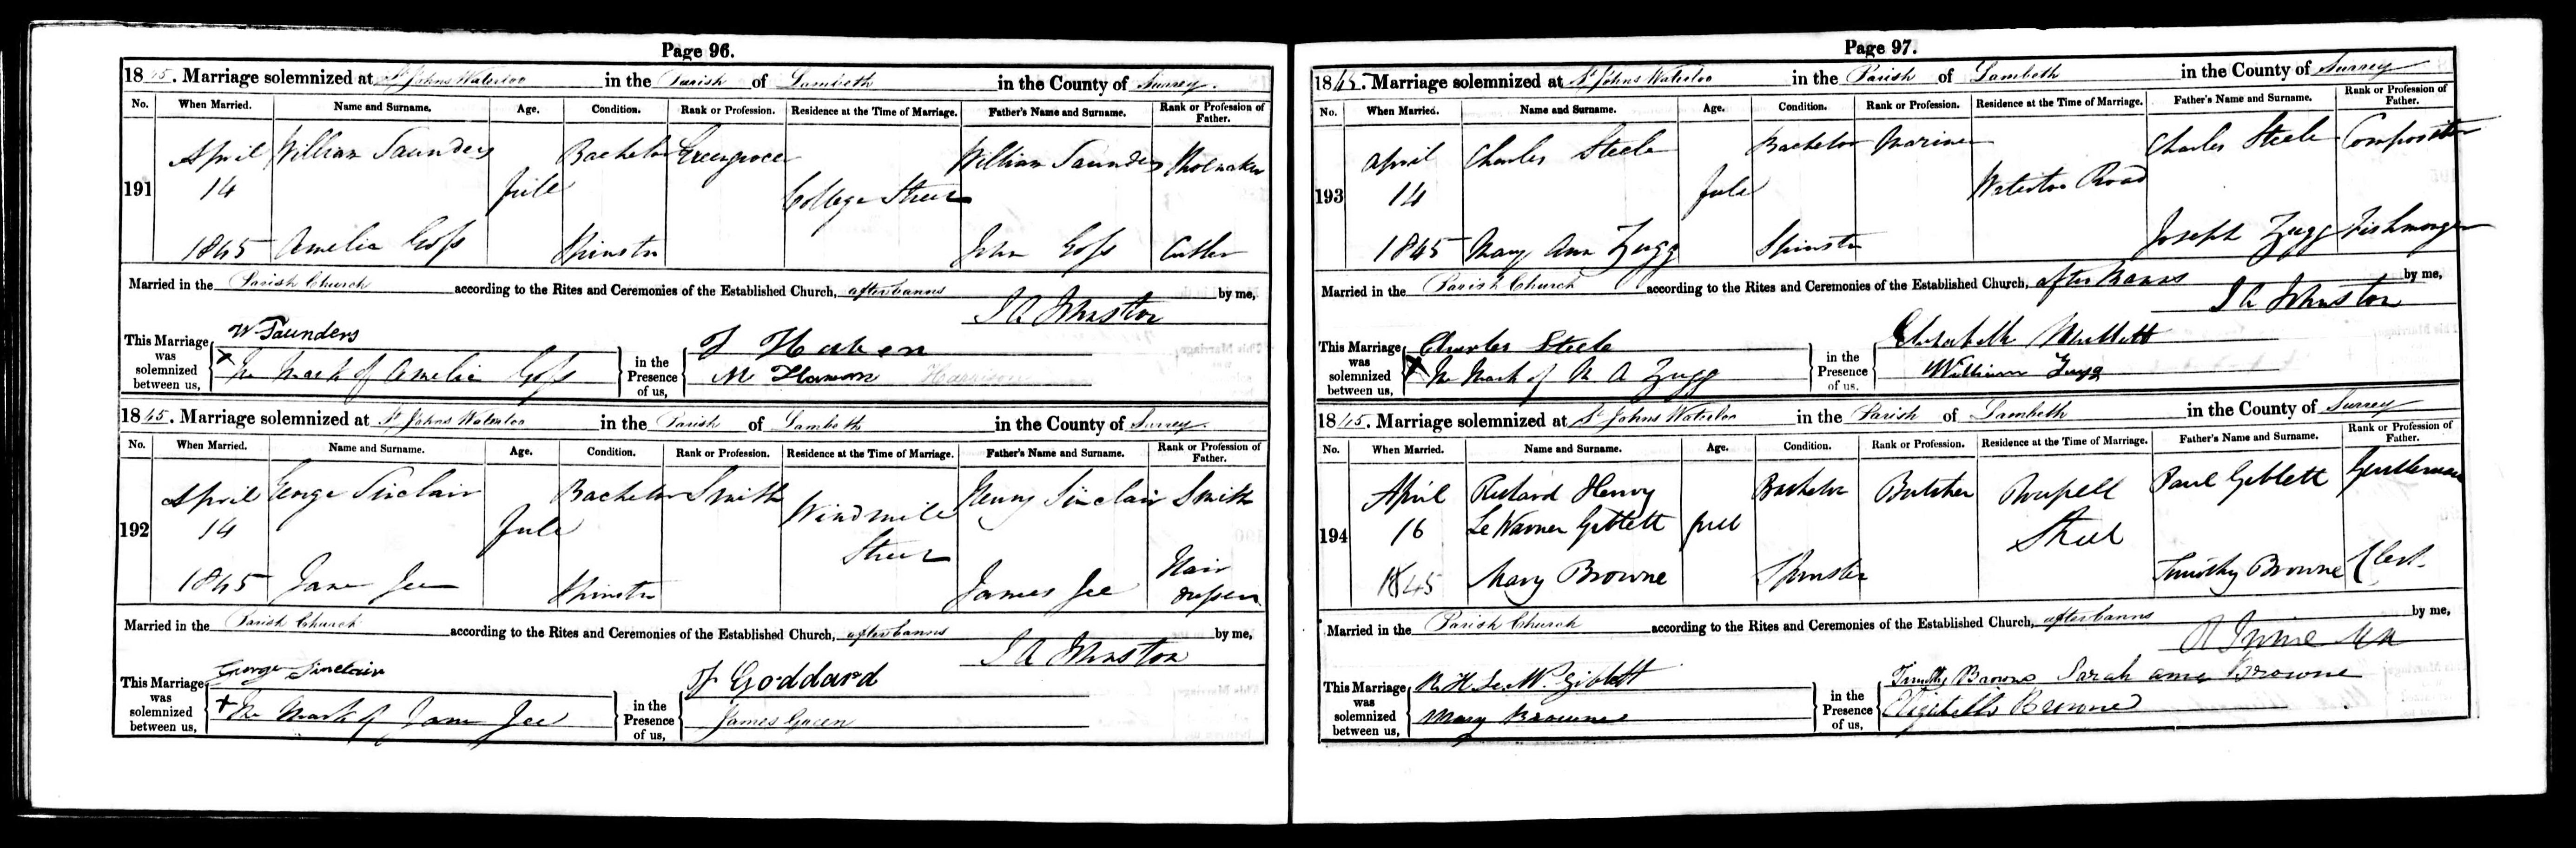 Page 96.
1845. Marriage solemnized at St Johns Waterloo in the Parish of Lambeth in the County of Surrey.
No. When Married. Name and Surname. Age. Condition. Rank or Profession. Residence at the Time of Marriage. Father's Name and Surname. Rank or Profession of Father.
April William Saunders Bachelor Greengrocer William Saunders Shoemaker
191 14 full College Street
1845 Amelia Goss Spinster John Goss Cutler
Married in the Parish Church according to the Rites and Ceremonies of the Established Church, after banns by me,
J A Johnston
This Marriage was solemnized between us,
W Saunders
X The Mark of Amelia Goss
in the Presence of us,
M
1845. Marriage solemnized at St Johns Waterloo in the Parish of Lambeth in the County of Surrey.
No. When Married. Name and Surname. Age. Condition. Rank or Profession. Residence at the Time of Marriage. Father's Name and Surname. Rank or Profession of Father.
April George Sinclair Bachelor Smith Henry Sinclair Smith
192 14 full Windmill Street
1845 Jane Jee Spinster James Jee Hair dresser
Married in the Parish Church according to the Rites and Ceremonies of the Established Church, after banns by me,
J A Johnston
This Marriage was solemnized between us,
George Sinclair
+ The Mark of Jane Jee
in the Presence of us,
J Goddard
James Green
Page 97.
1845. Marriage solemnized at St Johns Waterloo in the Parish of Lambeth in the County of Surrey
No. When Married. Name and Surname. Age. Condition. Rank or Profession. Residence at the Time of Marriage. Father's Name and Surname. Rank or Profession of Father.
April Charles Steele Bachelor Mariner Charles Steele Compositor
193 14 full Waterloo Road
1845 Mary Ann Zugg Spinster Joseph Zugg Fishmonger
Married in the Parish Church according to the Rites and Ceremonies of the Established Church, after Banns by me,
J A Johnston
This Marriage was solemnized between us,
Charles Steele
X The Mark of M A Zugg
in the Presence of us,
Elizabeth
William Zugg
1845. Marriage solemnized at St Johns Waterloo in the Parish of Lambeth in the County of Surrey
No. When Married. Name and Surname. Age. Condition. Rank or Profession. Residence at the Time of Marriage. Father's Name and Surname. Rank or Profession of Father.
April Richard Henry Bachelor Butcher Roupell Paul Giblett Gentleman
194 16 Le Warner Giblett full Street
1845 Mary Browne Spinster Timothy Browne Clerk
Married in the Parish Church according to the Rites and Ceremonies of the Established Church, after banns by me,
R Irvine MA
This Marriage was solemnized between us,
R. H. Le W. Giblett
Mary Browne
in the Presence of us,
Timothy Browne Sarah Browne
Browne